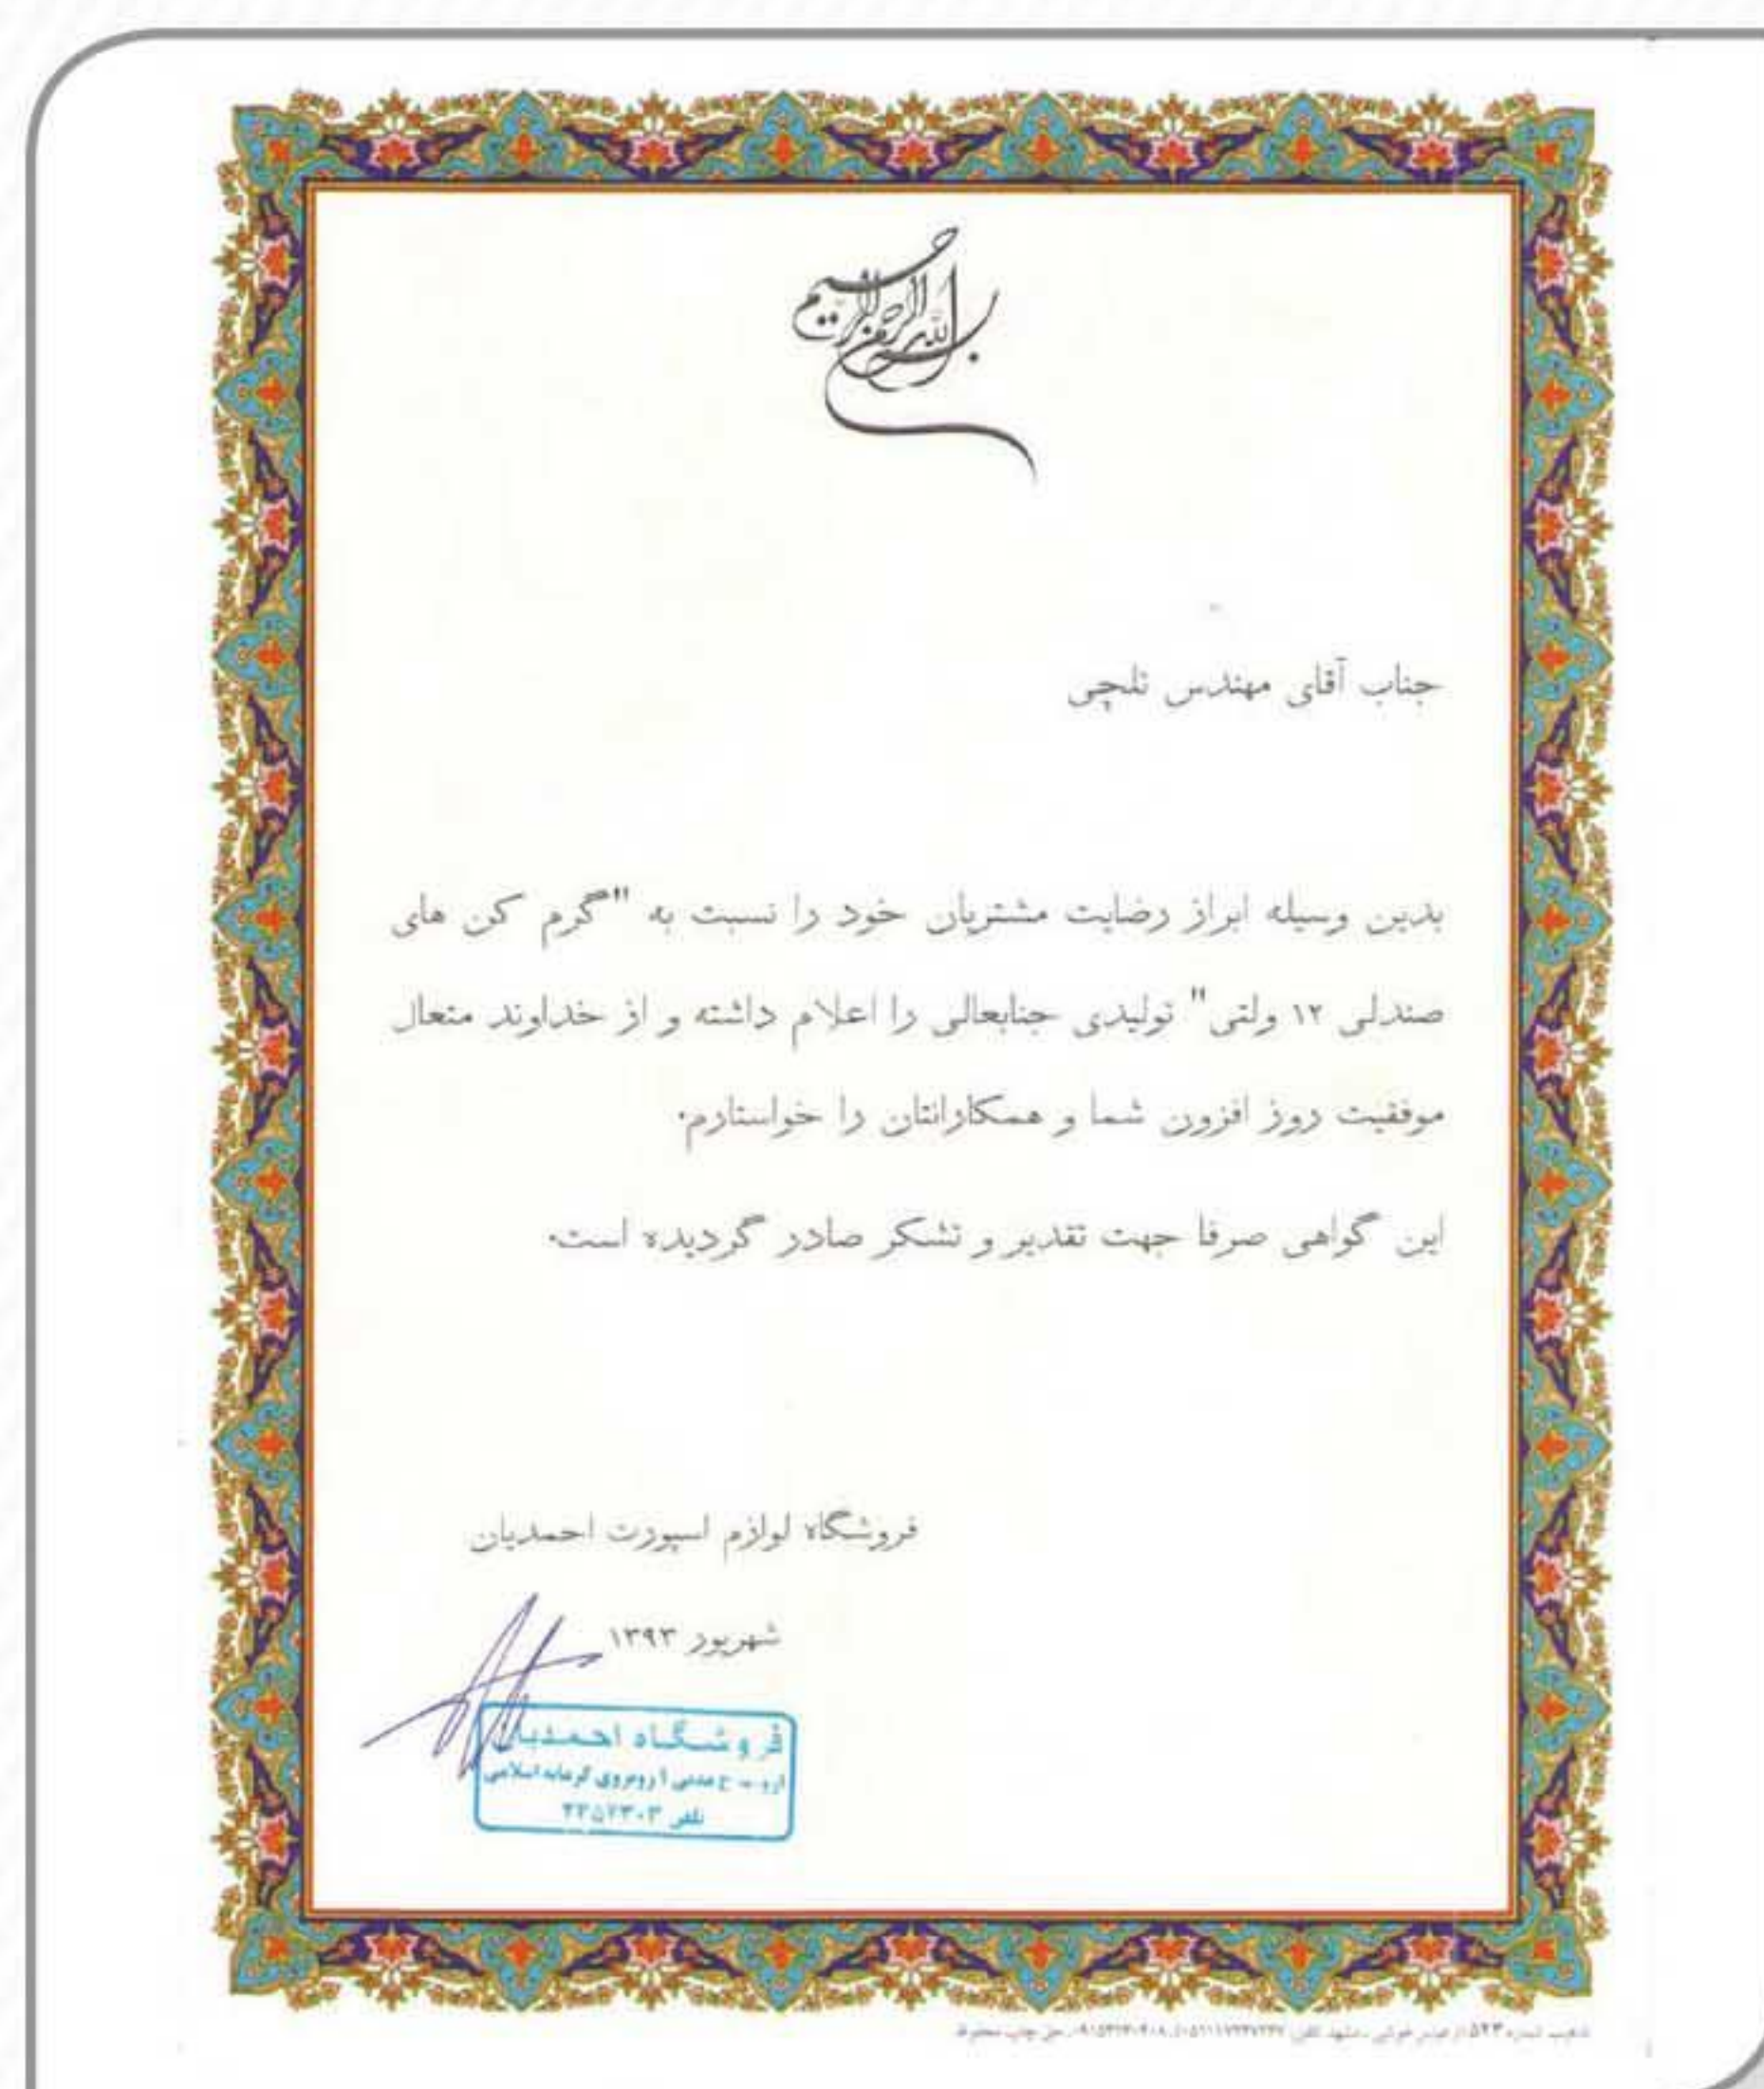 بسم الله الرحمن الرحیم
جناب آقای مهندس تلچی
بدین وسیله ابراز رضایت مشتریان خود را نسبت به "گرم کن های
صندلی ۱۲ ولتی" تولیدی جنابعالی را اعلام داشته و از خداوند متعال
موفقیت روز افزون شما و همکارانتان را خواستارم.
این گواهی صرفا جهت تقدیر و تشکر صادر گردیده است.
فروشگاه لوازم اسپورت احمدیان
شهریور ۱۳۹۳
فروشگاه احمدیان
مدنی ۲ روبروی گرمابه اسلامی
تلفن